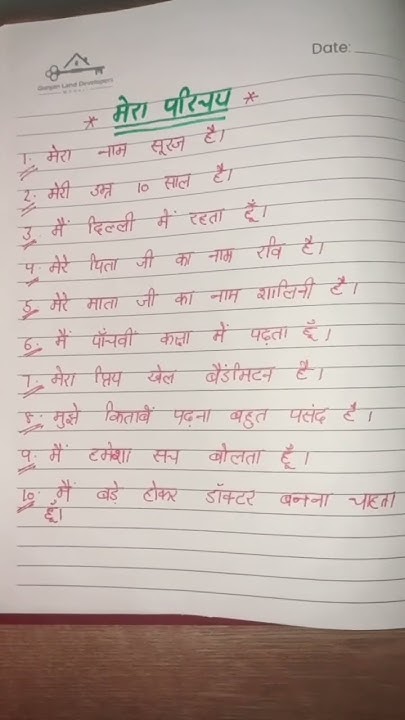 Ganper Land Developers
Date:
* मेरा परिचय *
1. मेरा नाम सूरज है।
2. मेरी उम्र 10 साल है।
3. मैं दिल्ली में रहता हूँ।
4. मेरे पिता जी का नाम रवि है।
5. मेरे माता जी का नाम शालिनी है।
6. मैं पाँचवीं कक्षा में पढ़ता हूँ।
7. मेरा प्रिय खेल बैडमिंटन है।
8. मुझे किताबें पढ़ना बहुत पसंद है।
9. मैं हमेशा सच बोलता हूँ।
10. मैं बड़े होकर डॉक्टर बनना चाहता
हूँ।